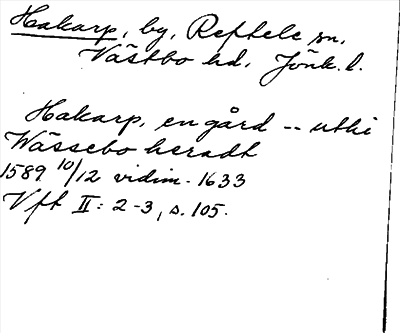 Hakarp, by, Reftele sn,
Västbo hd, Jönk. l.
Hakarp, en gård -- uthi
Wässebo heradt
1589 10/12 vidim. 1633
Vft II: 2-3, s. 105.